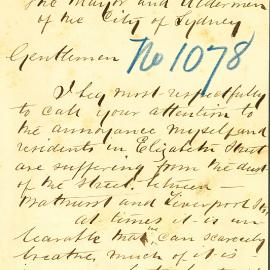 The Mayor and Aldermen
of the City of Sydney
Gentlemen
No 1078
I beg most respectfully
to call your attention to
the annoyance myself and
residents in Elizabeth Street
are suffering from the dust
of the street between
Bathurst and Liverpool Sts
at times it is un
bearable that we can scarcely
breathe much of it is